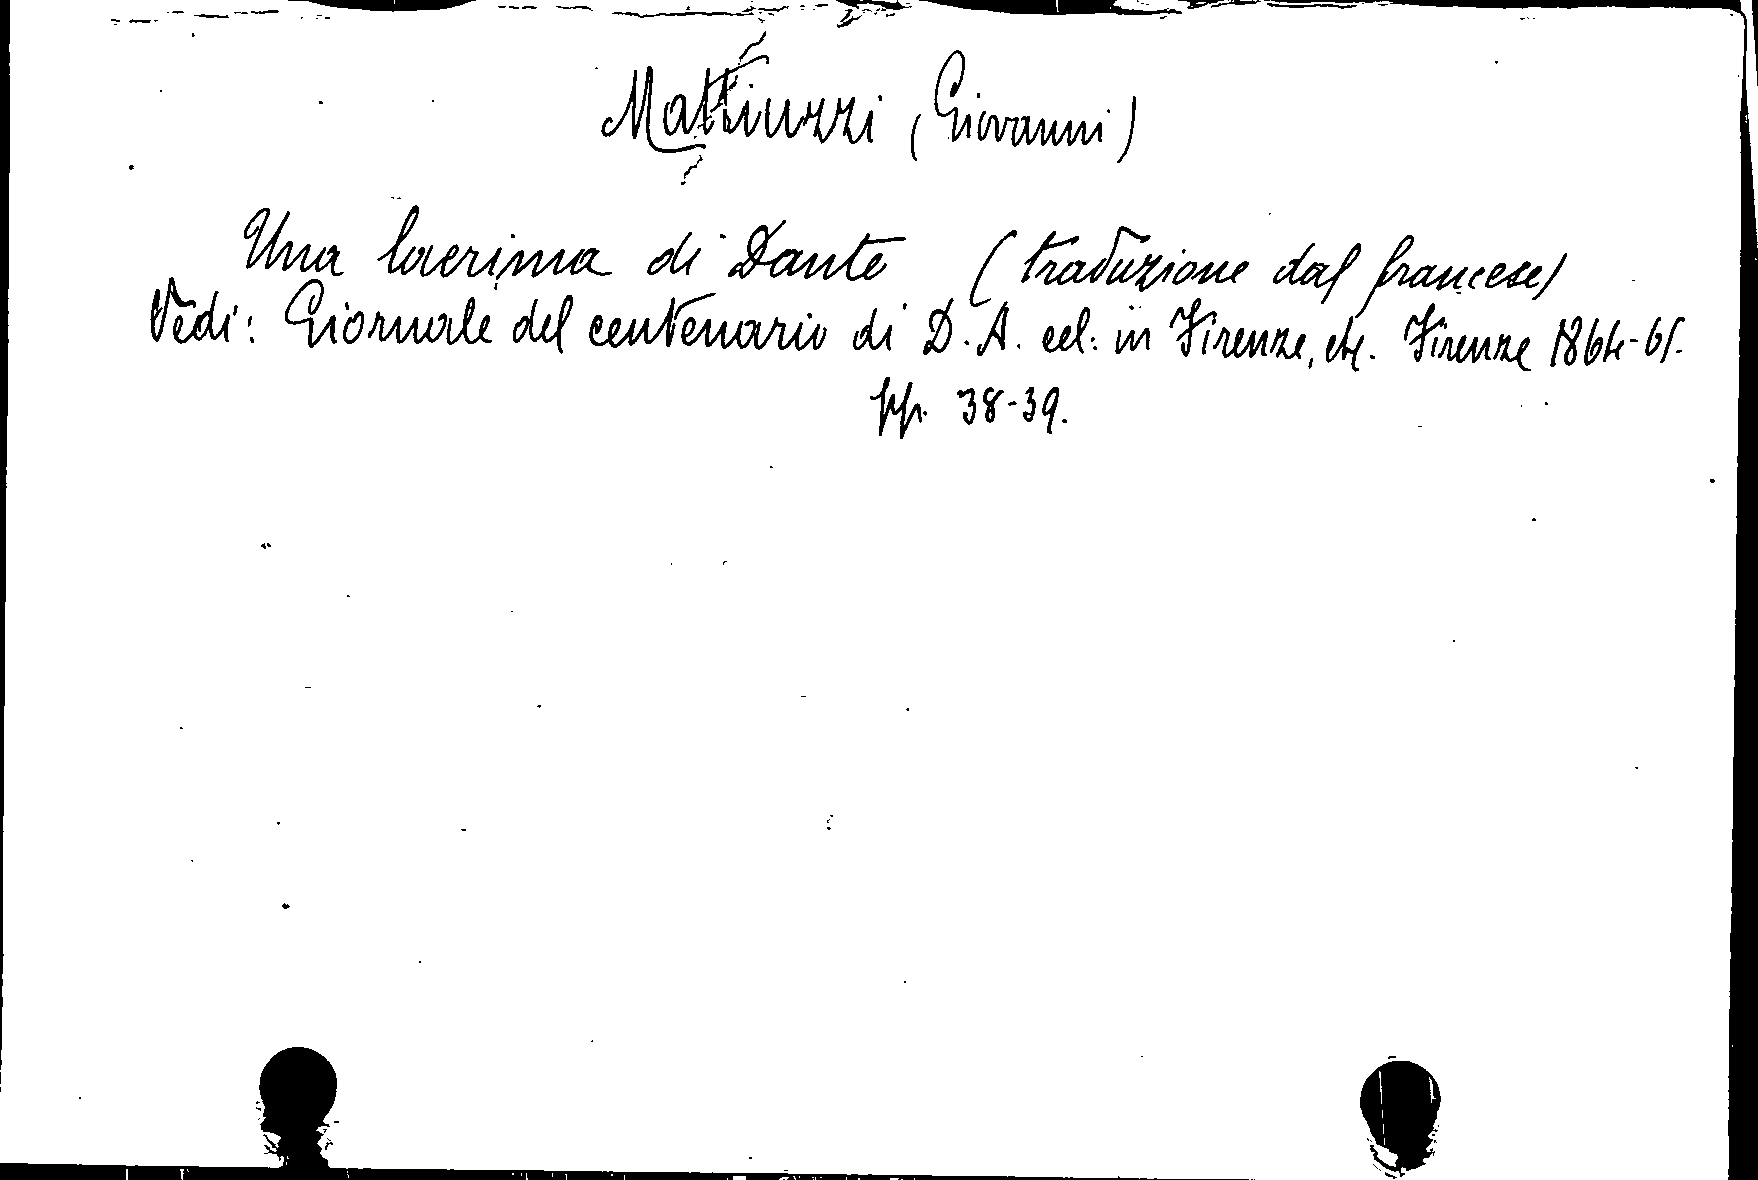 Mattiuzzi (Giovanni)
Una lacrima di Dante (traduzione dal francese)
Vedi: Giornale del centenario di D. A. cel: in Firenze, etc. Firenze 1864-65.
pp. 38-39.